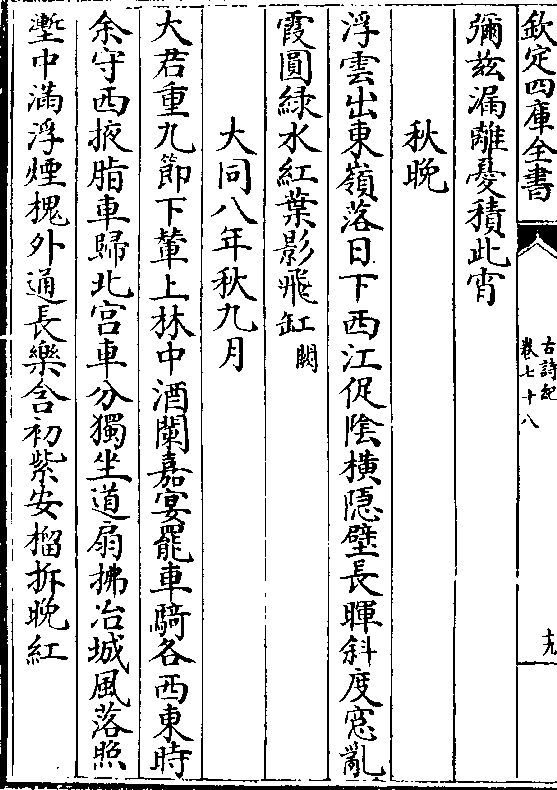 欽定四庫全書
古詩紀
卷七十八
十九
彌兹漏離憂積此宵
秋晚
浮雲出東嶺落日下西江促陰橫隠壁長暉斜度窓亂
霞圓綠水紅葉影飛缸闕
大同八年秋九月
大君重九節下輦上林中酒闌嘉宴罷車騎各西東時
余守西掖脂車歸北宫車分獨坐道扇拂冶城風落照
壍中滿浮煙槐外通長樂含初紫安榴拆晚紅